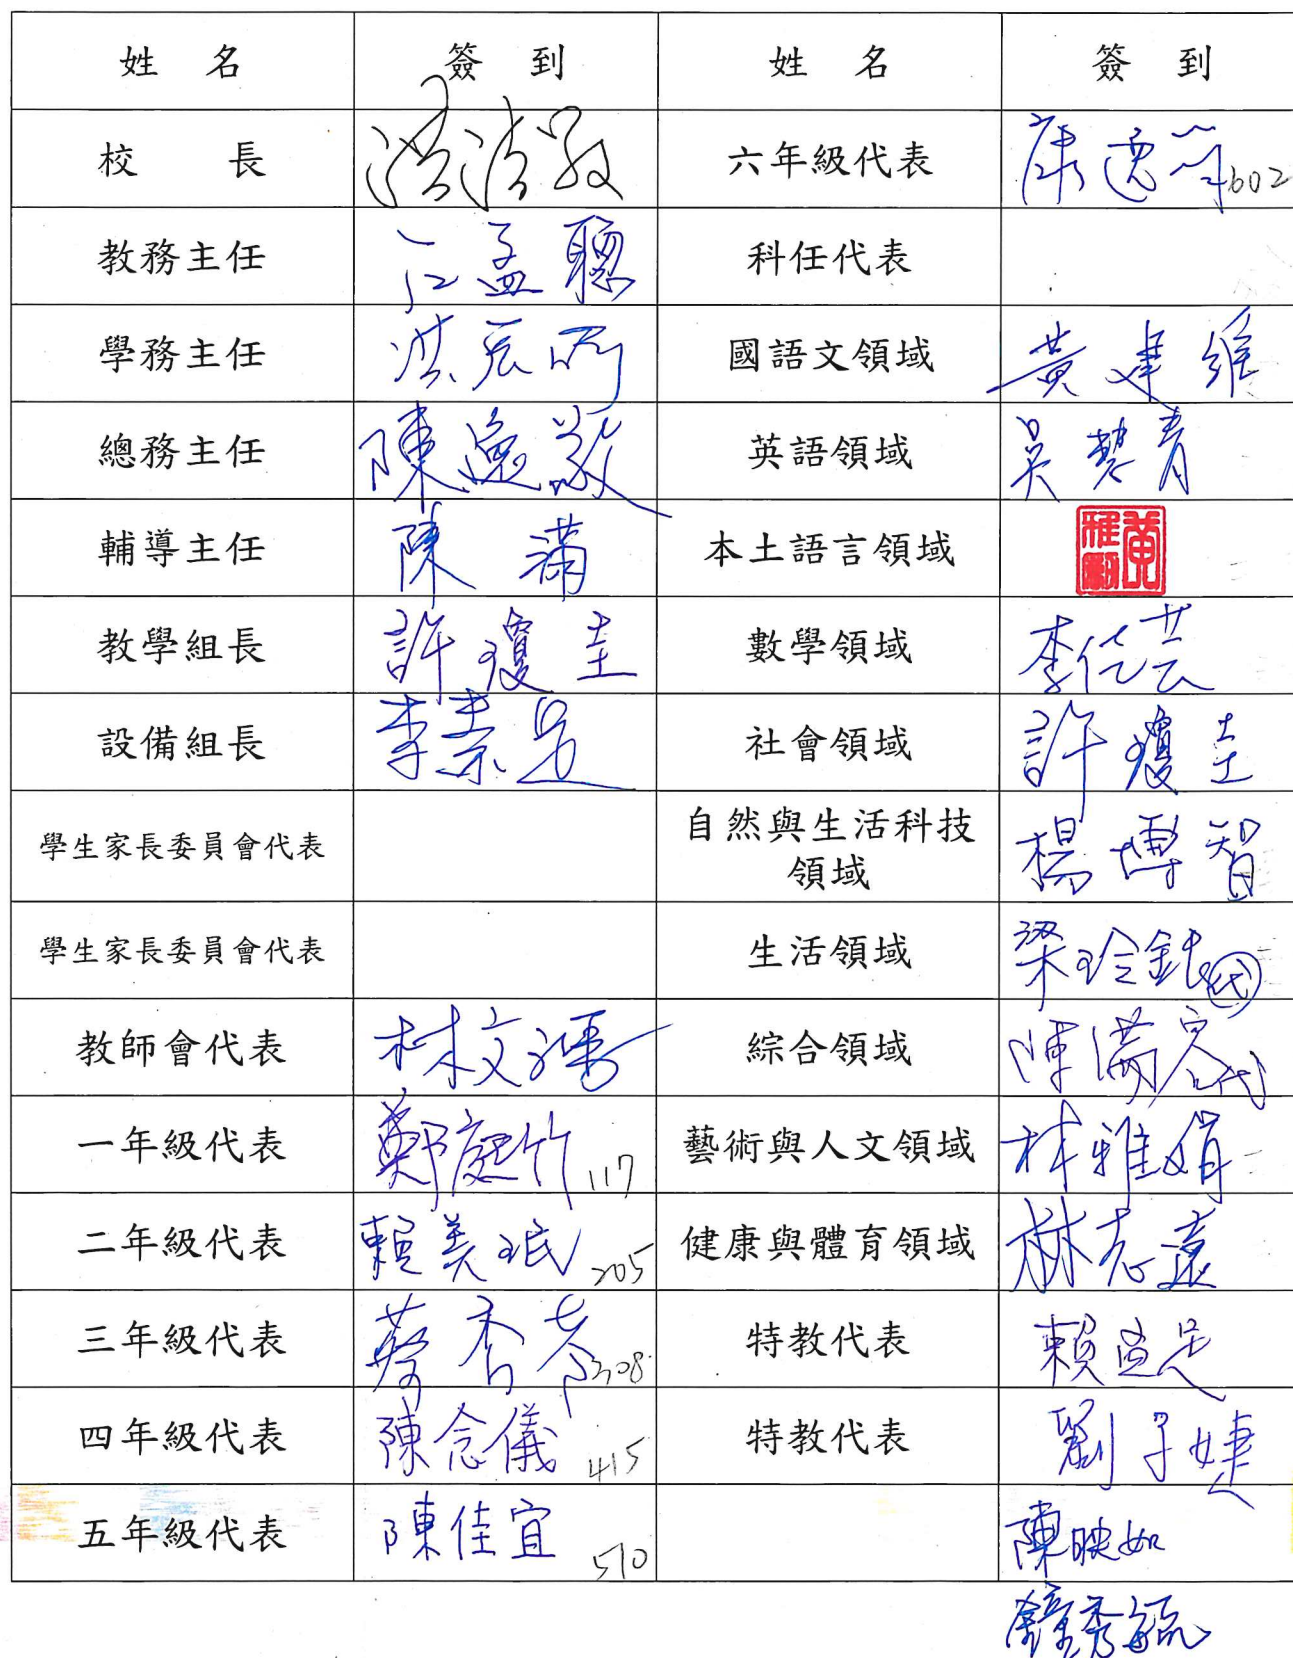 姓名 簽到 姓名 簽到
校長 六年級代表 602
教務主任 江孟聰 科任代表
學務主任 洪 國語文領域 黃建維
總務主任 陳逸 英語領域 吳碧青
輔導主任 陳滿 本土語言領域 黃雅
教學組長 許瓊圭 數學領域 李 芸
設備組長 李素 社會領域 許瓊圭
學生家長委員會代表 自然與生活科技
領域 楊博智
學生家長委員會代表 生活領域 梁玲 代
教師會代表 林文 綜合領域 陳滿 代
一年級代表 鄭庭竹 117 藝術與人文領域 林雅娟
二年級代表 賴美珉 205 健康與體育領域 林志遠
三年級代表 蔡香 308 特教代表 賴
四年級代表 陳念儀 415 特教代表 劉子婕
五年級代表 陳佳宜 510 陳映如
鐘秀毓